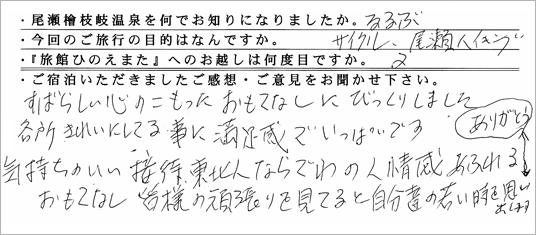 ・尾瀬檜枝岐温泉を何でお知りになりましたか。るるぶ
・今回のご旅行の目的はなんですか。 サイクル、尾瀬ハイキング
・『旅館ひのえまた』へのお越しは何度目ですか。 2
・ご宿泊いただきましたご感想・ご意見をお聞かせ下さい。
すばらしい心のこもったおもてなしにびっくりしました
各所きれいにしてる事に満足感でいっぱいです
ありがとう
気持ちのいい接待、東北人ならでわの人情感あふれる
おもてなし 皆様の頑張りを見てると自分達の若い時を思い
出します